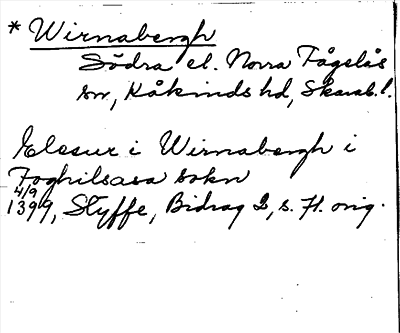 * Wirnabergh
Södra el. Norra Fågelås
sn, Kåkinds hd, Skarab. l.
Elesur i Wirnabergh i
Foghilsasa sokn
4/9
1399, Styffe, Bidrag 2, s. 71. orig.